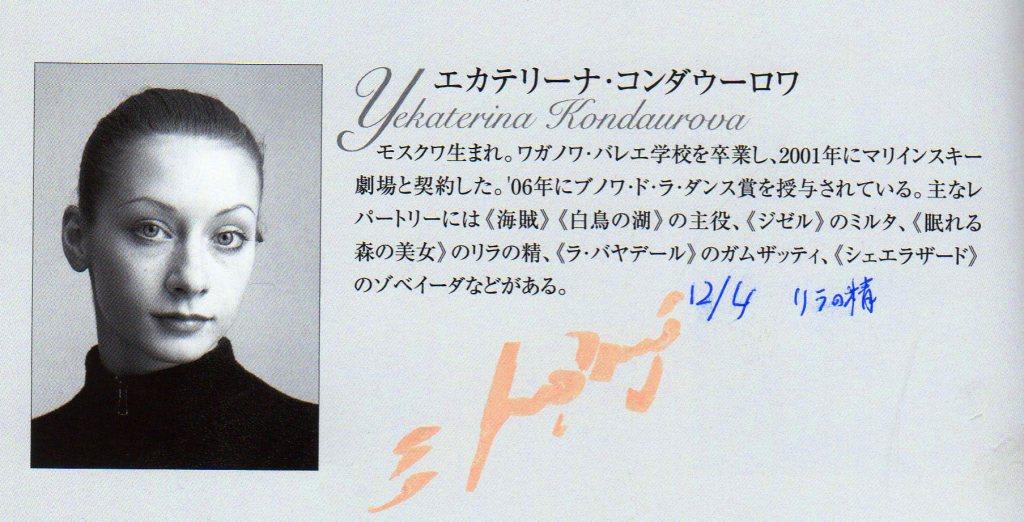 エカテリーナ・コンダウーロワ
Yekaterina Kondaurova
モスクワ生まれ。ワガノワ・バレエ学校を卒業し、2001年にマリインスキー
劇場と契約した。'06年にブノワ・ド・ラ・ダンス賞を授与されている。主なレ
パートリーには《海賊》《白鳥の湖》の主役、《ジゼル》のミルタ、《眠れる
森の美女》のリラの精、《ラ・バヤデール》のガムザッティ、《シェエラザード》
のゾベイーダなどがある。
12/4 リラの精